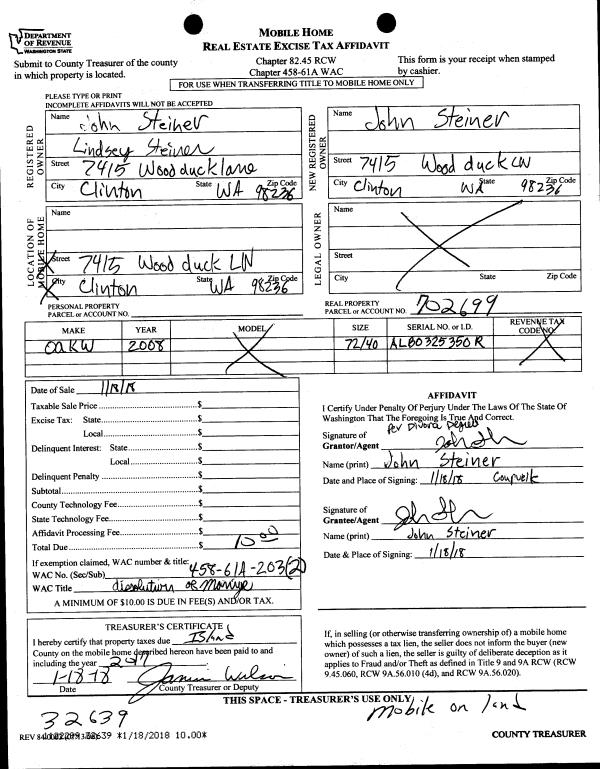 DEPARTMENT
OF REVENUE
WASHINGTON STATE
MOBILE HOME
REAL ESTATE EXCISE TAX AFFIDAVIT
Submit to County Treasurer of the county
in which property is located.
Chapter 82.45 RCW
Chapter 458-61A WAC
This form is your receipt when stamped
by cashier.
FOR USE WHEN TRANSFERRING TITLE TO MOBILE HOME ONLY
PLEASE TYPE OR PRINT
INCOMPLETE AFFIDAVITS WILL NOT BE ACCEPTED
REGISTERED
OWNER
Name John Steiner
Lindsey Steiner
Street 7415 Wood duck lane
City Clinton State WA Zip Code 98236
NEW REGISTERED
OWNER
Name John Steiner
Street 7415 Wood duck LN
City Clinton WA State 98236 Zip Code
LOCATION OF
MOBILE HOME
Name
Street 7415 Wood duck LN
City Clinton State WA 98236 Zip Code
LEGAL OWNER
Name
Street
City State Zip Code
PERSONAL PROPERTY
PARCEL or ACCOUNT NO.
REAL PROPERTY
PARCEL or ACCOUNT NO. 702699
MAKE YEAR MODEL SIZE SERIAL NO. or I.D. REVENUE TAX
CODE NO.
OAKW 2008 72/40 ALB0325350R
Date of Sale 1/18/18
Taxable Sale Price $
Excise Tax: State $
Local $
Delinquent Interest: State $
Local $
Delinquent Penalty $
Subtotal $
County Technology Fee $
State Technology Fee $
Affidavit Processing Fee $
Total Due $ 10.00
If exemption claimed, WAC number & title:
WAC No. (Sec/Sub) 458-61A-203(2)
WAC Title disolution OR Marriage
A MINIMUM OF $10.00 IS DUE IN FEE(S) AND/OR TAX.
AFFIDAVIT
I Certify Under Penalty Of Perjury Under The Laws Of The State Of
Washington That The Foregoing Is True And Correct.
per Divorce
Signature of
Grantor/Agent
Name (print) John Steiner
Date and Place of Signing: 1/18/18
Signature of
Grantee/Agent
Name (print) John Steiner
Date & Place of Signing: 1/18/18
TREASURER'S CERTIFICATE
I hereby certify that property taxes due Island
County on the mobile home described hereon have been paid to and
including the year 2017
1-18-18
Date County Treasurer or Deputy
If, in selling (or otherwise transferring ownership of) a mobile home
which possesses a tax lien, the seller does not inform the buyer (new
owner) of such a lien, the seller is guilty of deliberate deception as it
applies to Fraud and/or Theft as defined in Title 9 and 9A RCW (RCW
9.45.060, RCW 9A.56.010 (4d), and RCW 9A.56.020).
THIS SPACE - TREASURER'S USE ONLY
32639
Mobile on land
32639 *1/18/2018 10.00*
COUNTY TREASURER